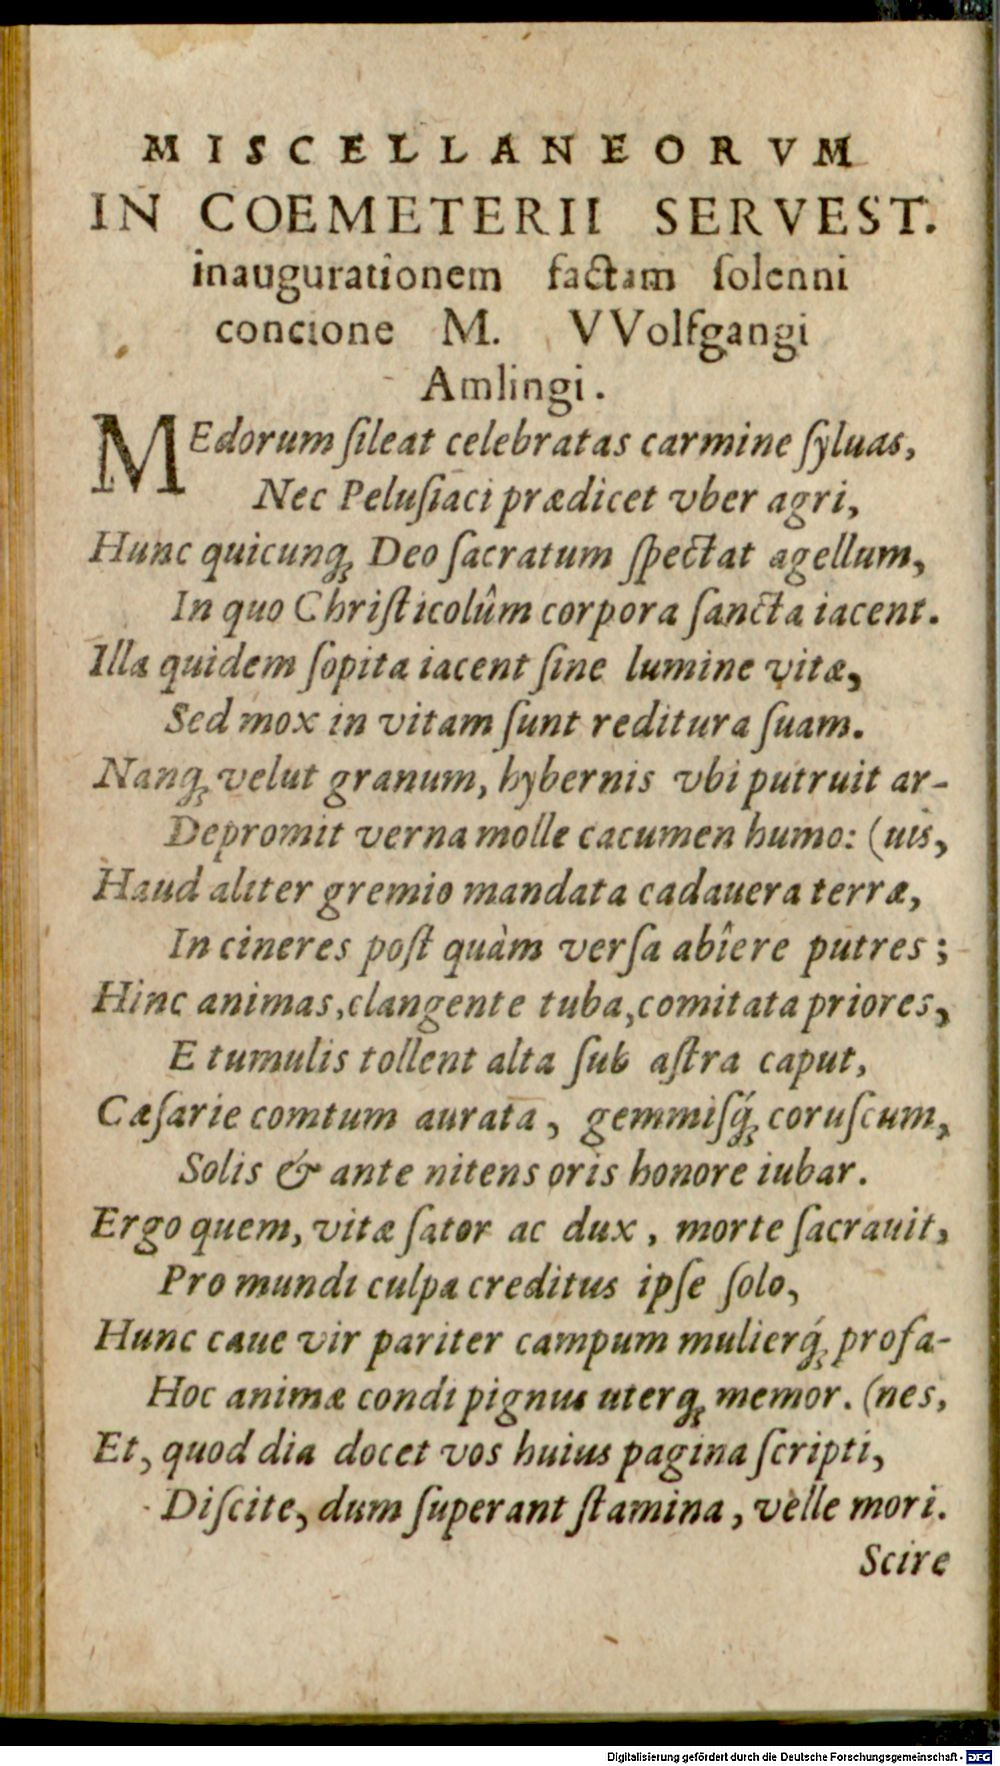 MISCELLANEORVM
IN COEMETERII SERVEST.
inaugurationem factam ſolenni
concione M. VVolfgangi
Amlingi.
MEdorum ſileat celebratas carmine ſyluas,
Nec Peluſiaci prædicet vber agri,
Hunc quicunq̨ Deo ſacratum ſpectat agellum,
In quo Chriſticolûm corpora ſancta iacent.
Illa quidem ſopita iacent ſine lumine vitæ,
Sed mox in vitam ſunt reditura ſuam.
Nanq̨ velut granum, hybernis vbi putruit ar-
Depromit verna molle cacumen humo: (uis,
Haud aliter gremio mandata cadauera terræ,
In cineres poſt quàm verſa abîere putres;
Hinc animas, clangente tuba, comitata priores,
E tumulis tollent alta ſub aſtra caput,
Cæſarie comtum aurata, gemmiſq̨́ coruſcum,
Solis & ante nitens oris honore iubar.
Ergo quem, vitæ ſator ac dux, morte ſacrauit,
Pro mundi culpa creditus ipſe ſolo,
Hunc caue vir pariter campum mulierq̨́ profa-
Hoc animæ condi pignus uterq̨ memor. (nes,
Et, quod dia docet vos huius pagina ſcripti,
Diſcite, dum ſuperant ſtamina, velle mori.
Scire
Digitalisierung gefördert durch die Deutsche Forschungsgemeinschaft - DFG